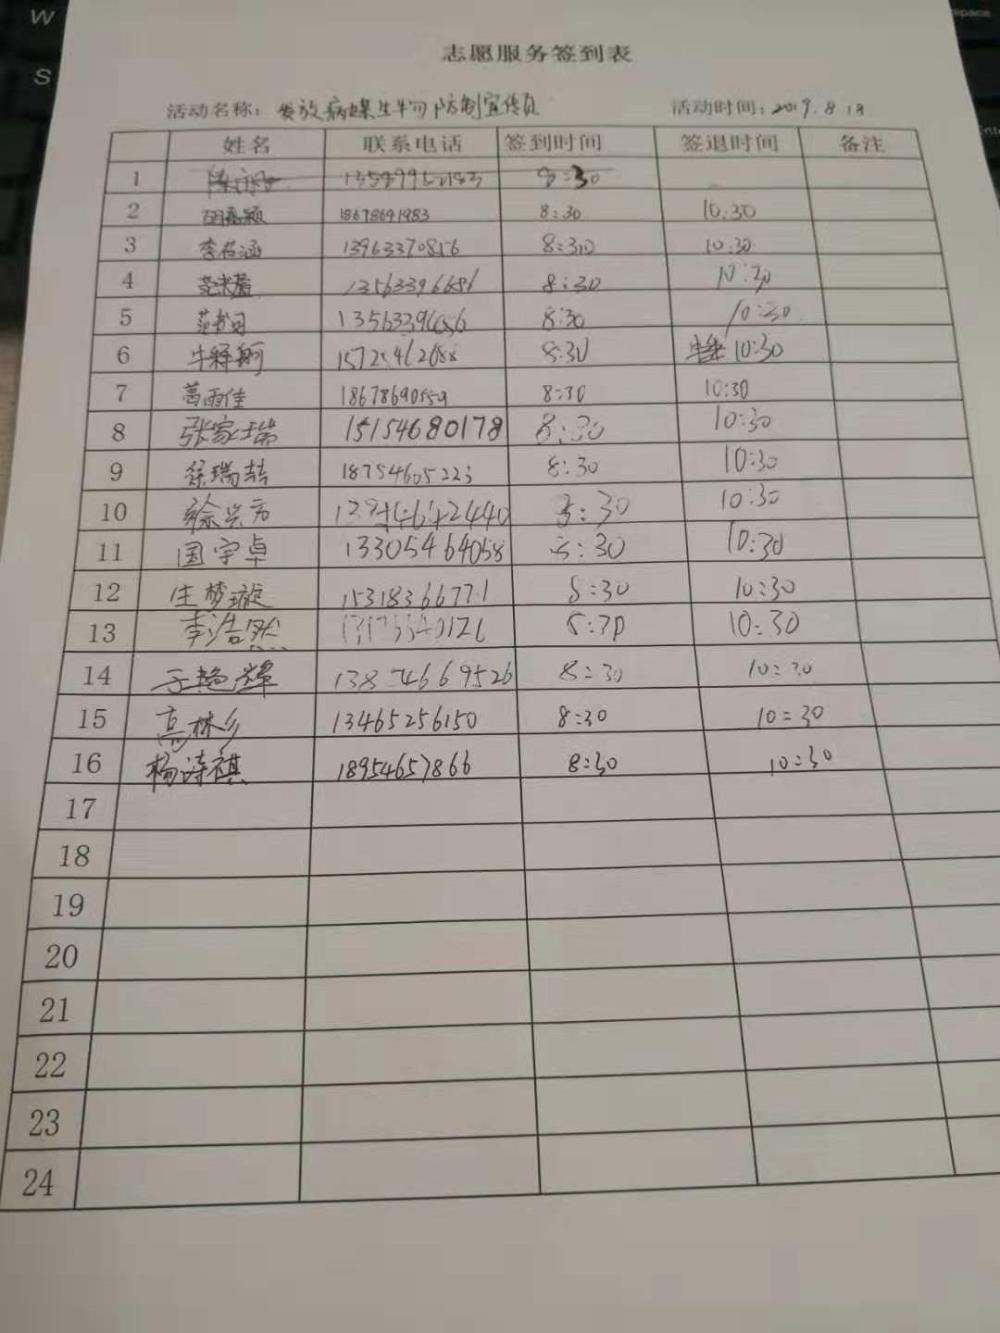 W
S
志愿服务签到表
活动名称：发放病媒生物防制宣传页 活动时间：2019.8.18
姓名 联系电话 签到时间 签退时间 备注
1 8:30
2 18678691983 8:30 10:30
3 李若涵 13963370856 8:30 10:30
4 13563396686 8:30 10:30
5 8:30 10:30
6 8:30 10:30
7 葛雨佳 18678690559 8:30 10:30
8 张家瑞 15154680178 8:30 10:30
9 徐瑞喆 18754605223 8:30 10:30
10 徐兴方 8:30 10:30
11 国宇卓 13305464058 8:30 10:30
12 生梦璇 15318366771 8:30 10:30
13 李浩然 8:30 10:30
14 于艳辉 13854669526 8:30 10:30
15 高林乡 13465256150 8:30 10:30
16 杨诗祺 18954657866 8:30 10:30
17
18
19
20
21
22
23
24